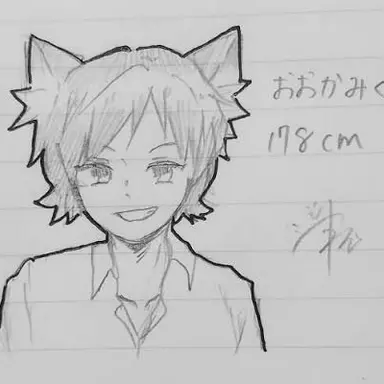 おおかみく
178cm